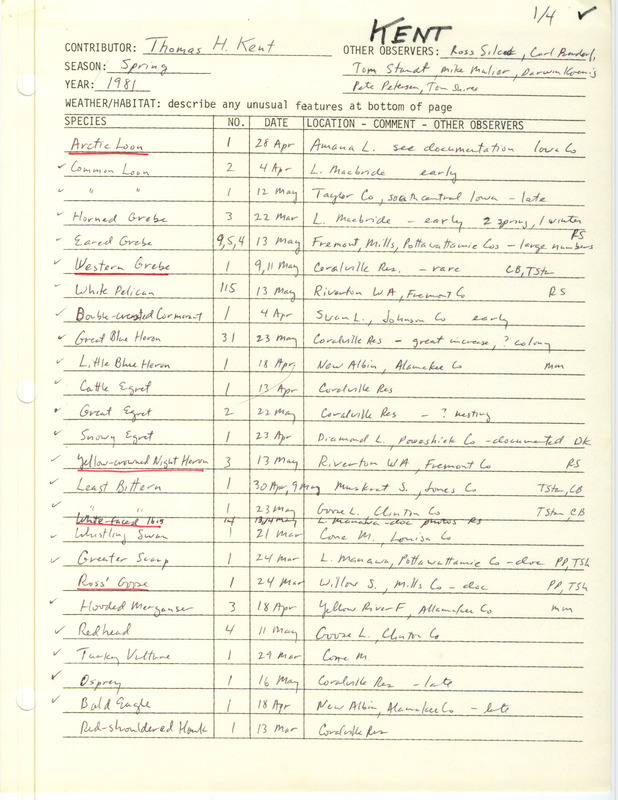 1/4 ✓
KENT
CONTRIBUTOR: Thomas H. Kent OTHER OBSERVERS: Ross Silcock, Carl Bendorf,
SEASON: Spring Tom Staudt, Mike Mulier, Darwin Koenig
YEAR: 1981 Pete Petersen, Tom Shires
WEATHER/HABITAT: describe any unusual features at bottom of page
SPECIES NO. DATE LOCATION - COMMENT - OTHER OBSERVERS
Arctic Loon 1 28 Apr Amana L. see documentation Iowa Co
✓ Common Loon 2 4 Apr L. Macbride early
" " 1 12 May Taylor Co, southcentral Iowa - late
✓ Horned Grebe 3 22 Mar L. Macbride - early 2 spring, 1 winter
✓ Eared Grebe 9,5,4 13 May Fremont, Mills, Pottawattamie Cos - large numbers RS
✓ Western Grebe 1 9,11 May Coralville Res. - rare CB, TSta
✓ White Pelican 115 13 May Riverton WA, Fremont Co RS
✓ Double-crested Cormorant 1 4 Apr Swan L., Johnson Co early
✓ Great Blue Heron 31 23 May Coralville Res - great increase, ? colony
✓ Little Blue Heron 1 18 Apr New Albin, Alamakee Co mm
✓ Cattle Egret 1 13 Apr Coralville Res
✓ Great Egret 2 22 May Coralville Res - ? nesting
✓ Snowy Egret 1 23 Apr Diamond L., Poweshiek Co - documented DK
✓ Yellow-crowned Night Heron 3 13 May Riverton WA, Fremont Co RS
✓ Least Bittern 1 30 Apr, 9 May Muskrat S., Jones Co TSta, CB
" " 1 23 May Goose L., Clinton Co TSta, CB
White-faced Ibis 14 13,14 May L. Manawa - doc photos RS
✓ Whistling Swan 1 21 Mar Cone M., Louisa Co
✓ Greater Scaup 1 24 Mar L. Manawa, Pottawattamie Co - doc PP, TSh
✓ Ross' Goose 1 24 Mar Willow S., Mills Co - doc PP, TSh
✓ Hooded Merganser 3 18 Apr Yellow River F, Allamakee Co mm
✓ Redhead 4 11 May Goose L., Clinton Co
✓ Turkey Vulture 1 29 Mar Cone M
✓ Osprey 1 16 May Coralville Res - late
✓ Bald Eagle 1 18 Apr New Albin, Alamakee Co - late
Red-shouldered Hawk 1 13 Mar Coralville Res